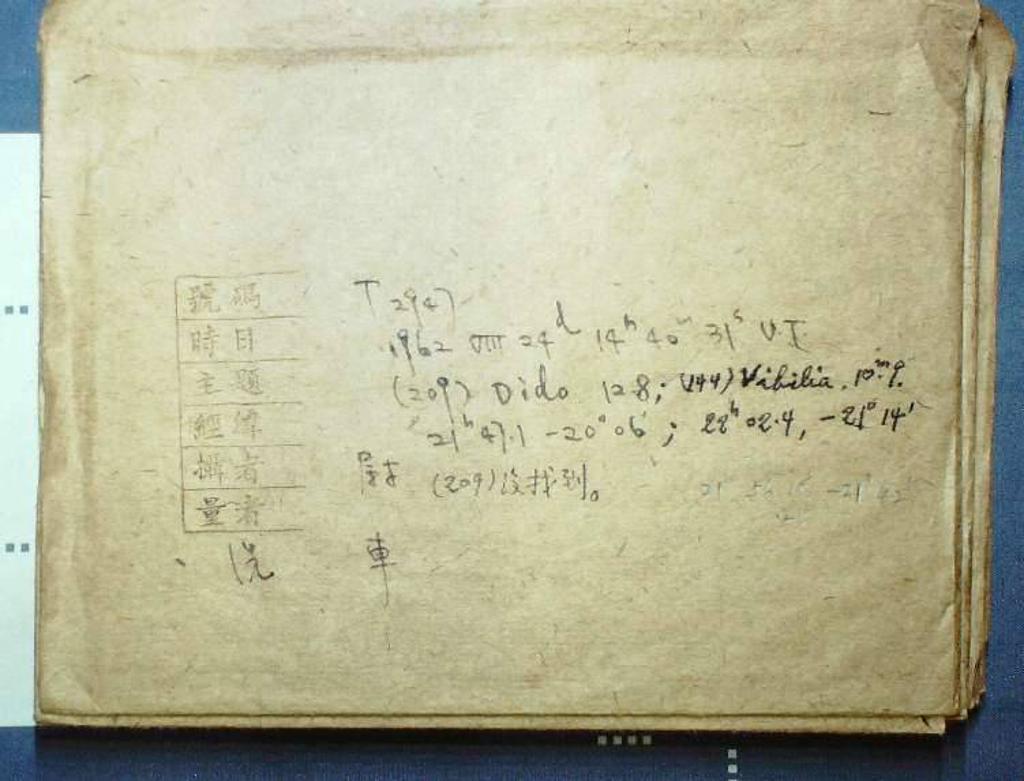 號碼 T 2947
時日 1962 VIII 24d 14h 40m 31s U.T
主題 (209) Dido 12.8; (144) Vibilia. 10m.9.
經緯 21h 47.1 -20° 06'; 22h 02.4, -21° 14'
攝者 (209)没找到。
量者
洗 車